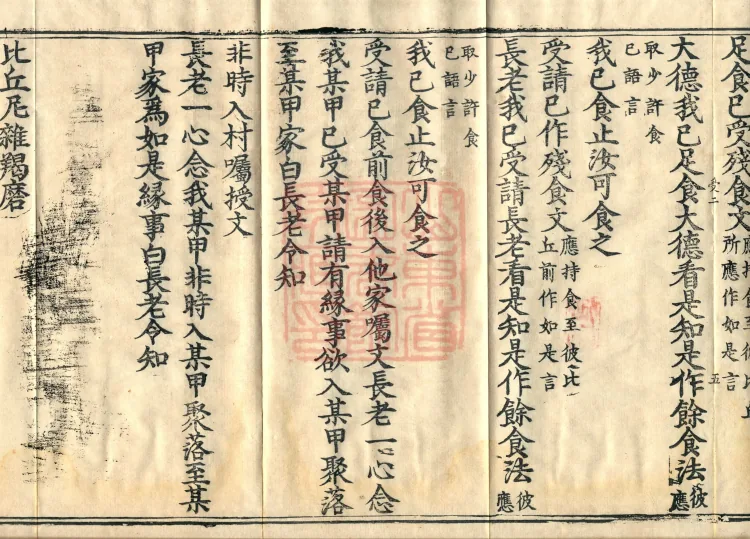 足食已受殘食文應持食至彼比丘所應作如是言
大德我已足食大德看是知是作餘食法彼應
取少許食已語言
我已食止汝可食之
受請已作殘食文應持食至彼比丘前作如是言
長老我已受請長老看是知是作餘食法彼應
取少許食已語言
我已食止汝可食之
受請已食前食後入他家囑文長老一心念
我某甲已受某甲請有緣事欲入某甲聚落
至某甲家白長老令知
非時入村囑授文
長老一心念我某甲非時入某甲聚落至某
甲家爲如是緣事白長老令知
比丘尼雜羯磨